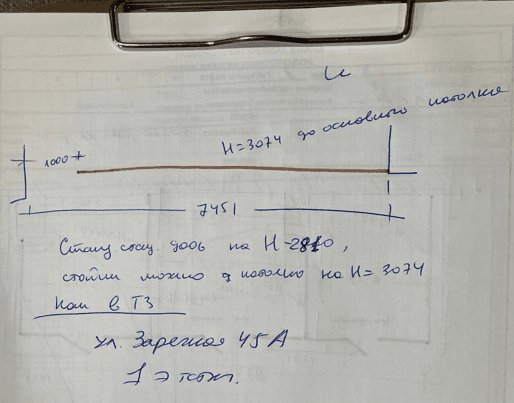 H=3074 до основного потолка
1000
7451
на H-2810,
стойки можно д потолко на H=3074
Как в ТЗ
ул. Заречная 45А
1 этаж.